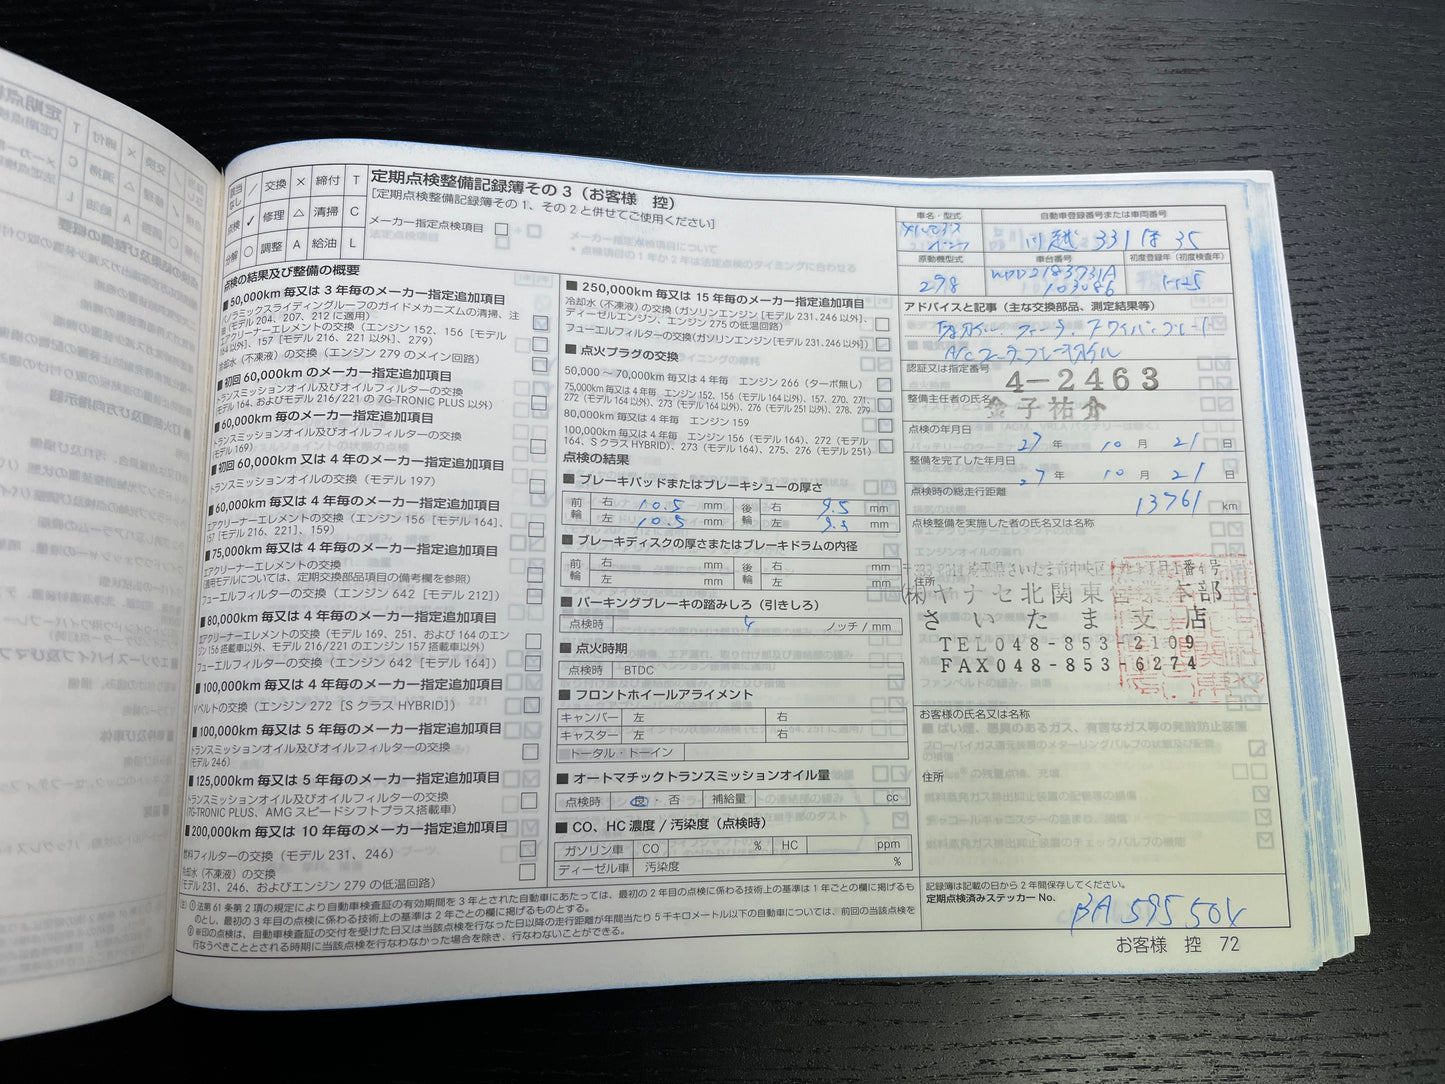 該当なし ／ 交換 × 締付 T
点検 ✓ 修理 △ 清掃 C
分解 ○ 調整 A 給油 L
定期点検整備記録簿その3（お客様 控）
[定期点検整備記録簿その1、その2と併せてご使用ください]
メーカー指定点検項目
点検の結果及び整備の概要
■50,000km毎又は3年毎のメーカー指定追加項目
パノラミックスライディングルーフのガイドメカニズムの清掃、注
油（モデル204、207、212に適用）
エアクリーナーエレメントの交換（エンジン152、156［モデル
164以外］、157［モデル216、221以外］、279）
冷却水（不凍液）の交換（エンジン279のメイン回路）
■初回60,000kmのメーカー指定追加項目
トランスミッションオイル及びオイルフィルターの交換
（モデル164、およびモデル216/221の7G-TRONIC PLUS以外）
■60,000km毎のメーカー指定追加項目
トランスミッションオイル及びオイルフィルターの交換
（モデル169）
■初回60,000km又は4年毎のメーカー指定追加項目
トランスミッションオイルの交換（モデル197）
■60,000km又は4年毎のメーカー指定追加項目
エアクリーナーエレメントの交換（エンジン156［モデル164］、
157［モデル216、221］、159）
■75,000km毎又は4年毎のメーカー指定追加項目
エアクリーナーエレメントの交換
（適用モデルについては、定期交換部品項目の備考欄を参照）
フューエルフィルターの交換（エンジン642［モデル212］）
■80,000km毎又は4年毎のメーカー指定追加項目
エアクリーナーエレメントの交換（モデル169、251、および164のエン
ジン156搭載車以外、モデル216/221のエンジン157搭載車以外）
フューエルフィルターの交換（エンジン642［モデル164］）
■100,000km毎又は4年毎のメーカー指定追加項目
Vベルトの交換（エンジン272［SクラスHYBRID］）
■100,000km毎又は5年毎のメーカー指定追加項目
トランスミッションオイル及びオイルフィルターの交換
（モデル246）
■125,000km毎又は5年毎のメーカー指定追加項目
トランスミッションオイル及びオイルフィルターの交換
（7G-TRONIC PLUS、AMGスピードシフトプラス搭載車）
■200,000km毎又は10年毎のメーカー指定追加項目
燃料フィルターの交換（モデル231、246）
冷却水（不凍液）の交換
（モデル231、246、およびエンジン279の低温回路）
■250,000km毎又は15年毎のメーカー指定追加項目
冷却水（不凍液）の交換（ガソリンエンジン［モデル231、246以外］、
ディーゼルエンジン、エンジン275の低温回路）
フューエルフィルターの交換（ガソリンエンジン［モデル231、246以外］）
■点火プラグの交換
50,000～70,000km毎又は4年毎 エンジン266（ターボ無し）
75,000km毎又は4年毎 エンジン152、156（モデル164以外）、157、270、271、
272（モデル164以外）、273（モデル164以外）、276（モデル251以外）、278、279
80,000km毎又は4年毎 エンジン159
100,000km毎又は4年毎 エンジン156（モデル164）、272（モデル
164、SクラスHYBRID）、273（モデル164）、275、276（モデル251）
点検の結果
■ブレーキパッドまたはブレーキシューの厚さ
前輪 右 10.5 mm 後輪 右 9.5 mm
左 10.5 mm 左 9.5 mm
■ブレーキディスクの厚さまたはブレーキドラムの内径
前輪 右 mm 後輪 右 mm
左 mm 左 mm
■パーキングブレーキの踏みしろ（引きしろ）
点検時 4 ノッチ/mm
■点火時期
点検時 BTDC
■フロントホイールアライメント
キャンバー 左 右
キャスター 左 右
トータル・トーイン
■オートマチックトランスミッションオイル量
点検時 良・否 補給量 cc
■CO、HC濃度/汚染度（点検時）
ガソリン車 CO % HC ppm
ディーゼル車 汚染度 %
注）①法第61条第2項の規定により自動車検査証の有効期間を3年とされた自動車にあたっては、最初の2年目の点検に係わる技術上の基準は1年ごとの欄に掲げるも
のとし、最初の3年目の点検に係わる技術上の基準は2年ごとの欄に掲げるものとする。
②※印の点検は、自動車検査証の交付を受けた日又は当該点検を行なった日以降の走行距離が年間当たり5千キロメートル以下の自動車については、前回の当該点検を
行なうべきこととされる時期に当該点検を行なわなかった場合を除き、行なわないことができる。
車名・型式
自動車登録番号または車両番号
川越 331 ほ 35
原動機型式
車台番号
初度登録年（初度検査年）
278
WDD2183731A
103086
H25
アドバイスと記事（主な交換部品、測定結果等）
認証又は指定番号
4-2463
整備主任者の氏名
金子祐介
点検の年月日
27 年 10 月 21 日
整備を完了した年月日
27 年 10 月 21 日
点検時の総走行距離
13761 km
点検整備を実施した者の氏名又は名称
住所
㈱ヤナセ北関東営業本部
さいたま支店
TEL048-853-2109
FAX048-853-6274
お客様の氏名又は名称
住所
記録簿は記載の日から2年間保存してください。
定期点検済みステッカーNo.
BA 595504
お客様 控 72